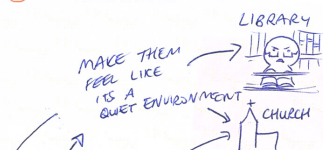 LIBRARY
MAKE THEM
FEEL LIKE
ITS A
QUIET ENVIRONMENT
CHURCH